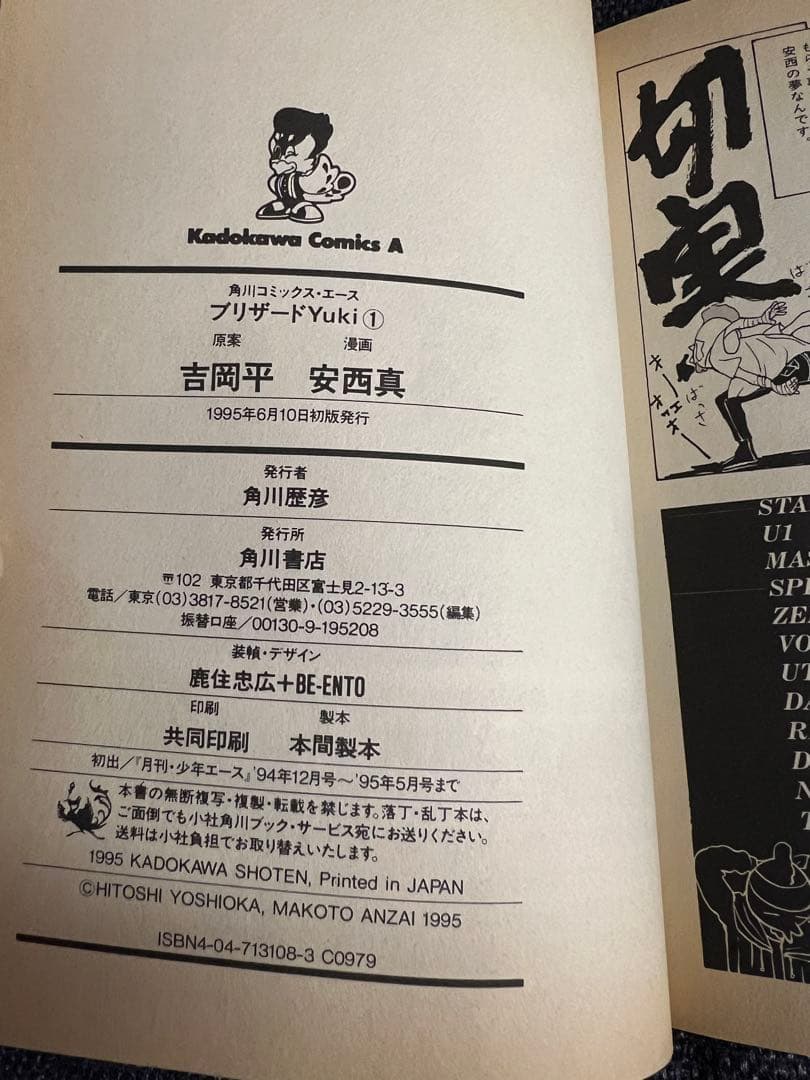 Kadokawa Comics A
角川コミックス・エース
ブリザードYuki①
原案 漫画
吉岡平 安西真
1995年6月10日初版発行
発行者
角川歴彦
発行所
角川書店
〒102 東京都千代田区富士見2-13-3
電話/東京(03)3817-8521(営業)・(03)5229-3555(編集)
振替口座/00130-9-195208
装幀・デザイン
鹿住忠広+BE-ENTO
印刷 製本
共同印刷 本間製本
初出/『月刊・少年エース』'94年12月号〜'95年5月号まで
本書の無断複写・複製・転載を禁じます。落丁・乱丁本は、
ご面倒でも小社角川ブック・サービス宛にお送りください。
送料は小社負担でお取り替えいたします。
1995 KADOKAWA SHOTEN, Printed in JAPAN
©HITOSHI YOSHIOKA, MAKOTO ANZAI 1995
ISBN4-04-713108-3 C0979
安西の夢なんです。
切実
ばっさ
オー
オッエオー
STA
U1
MAS
SPI
ZE
VO
UT
DA
R
D
N
T